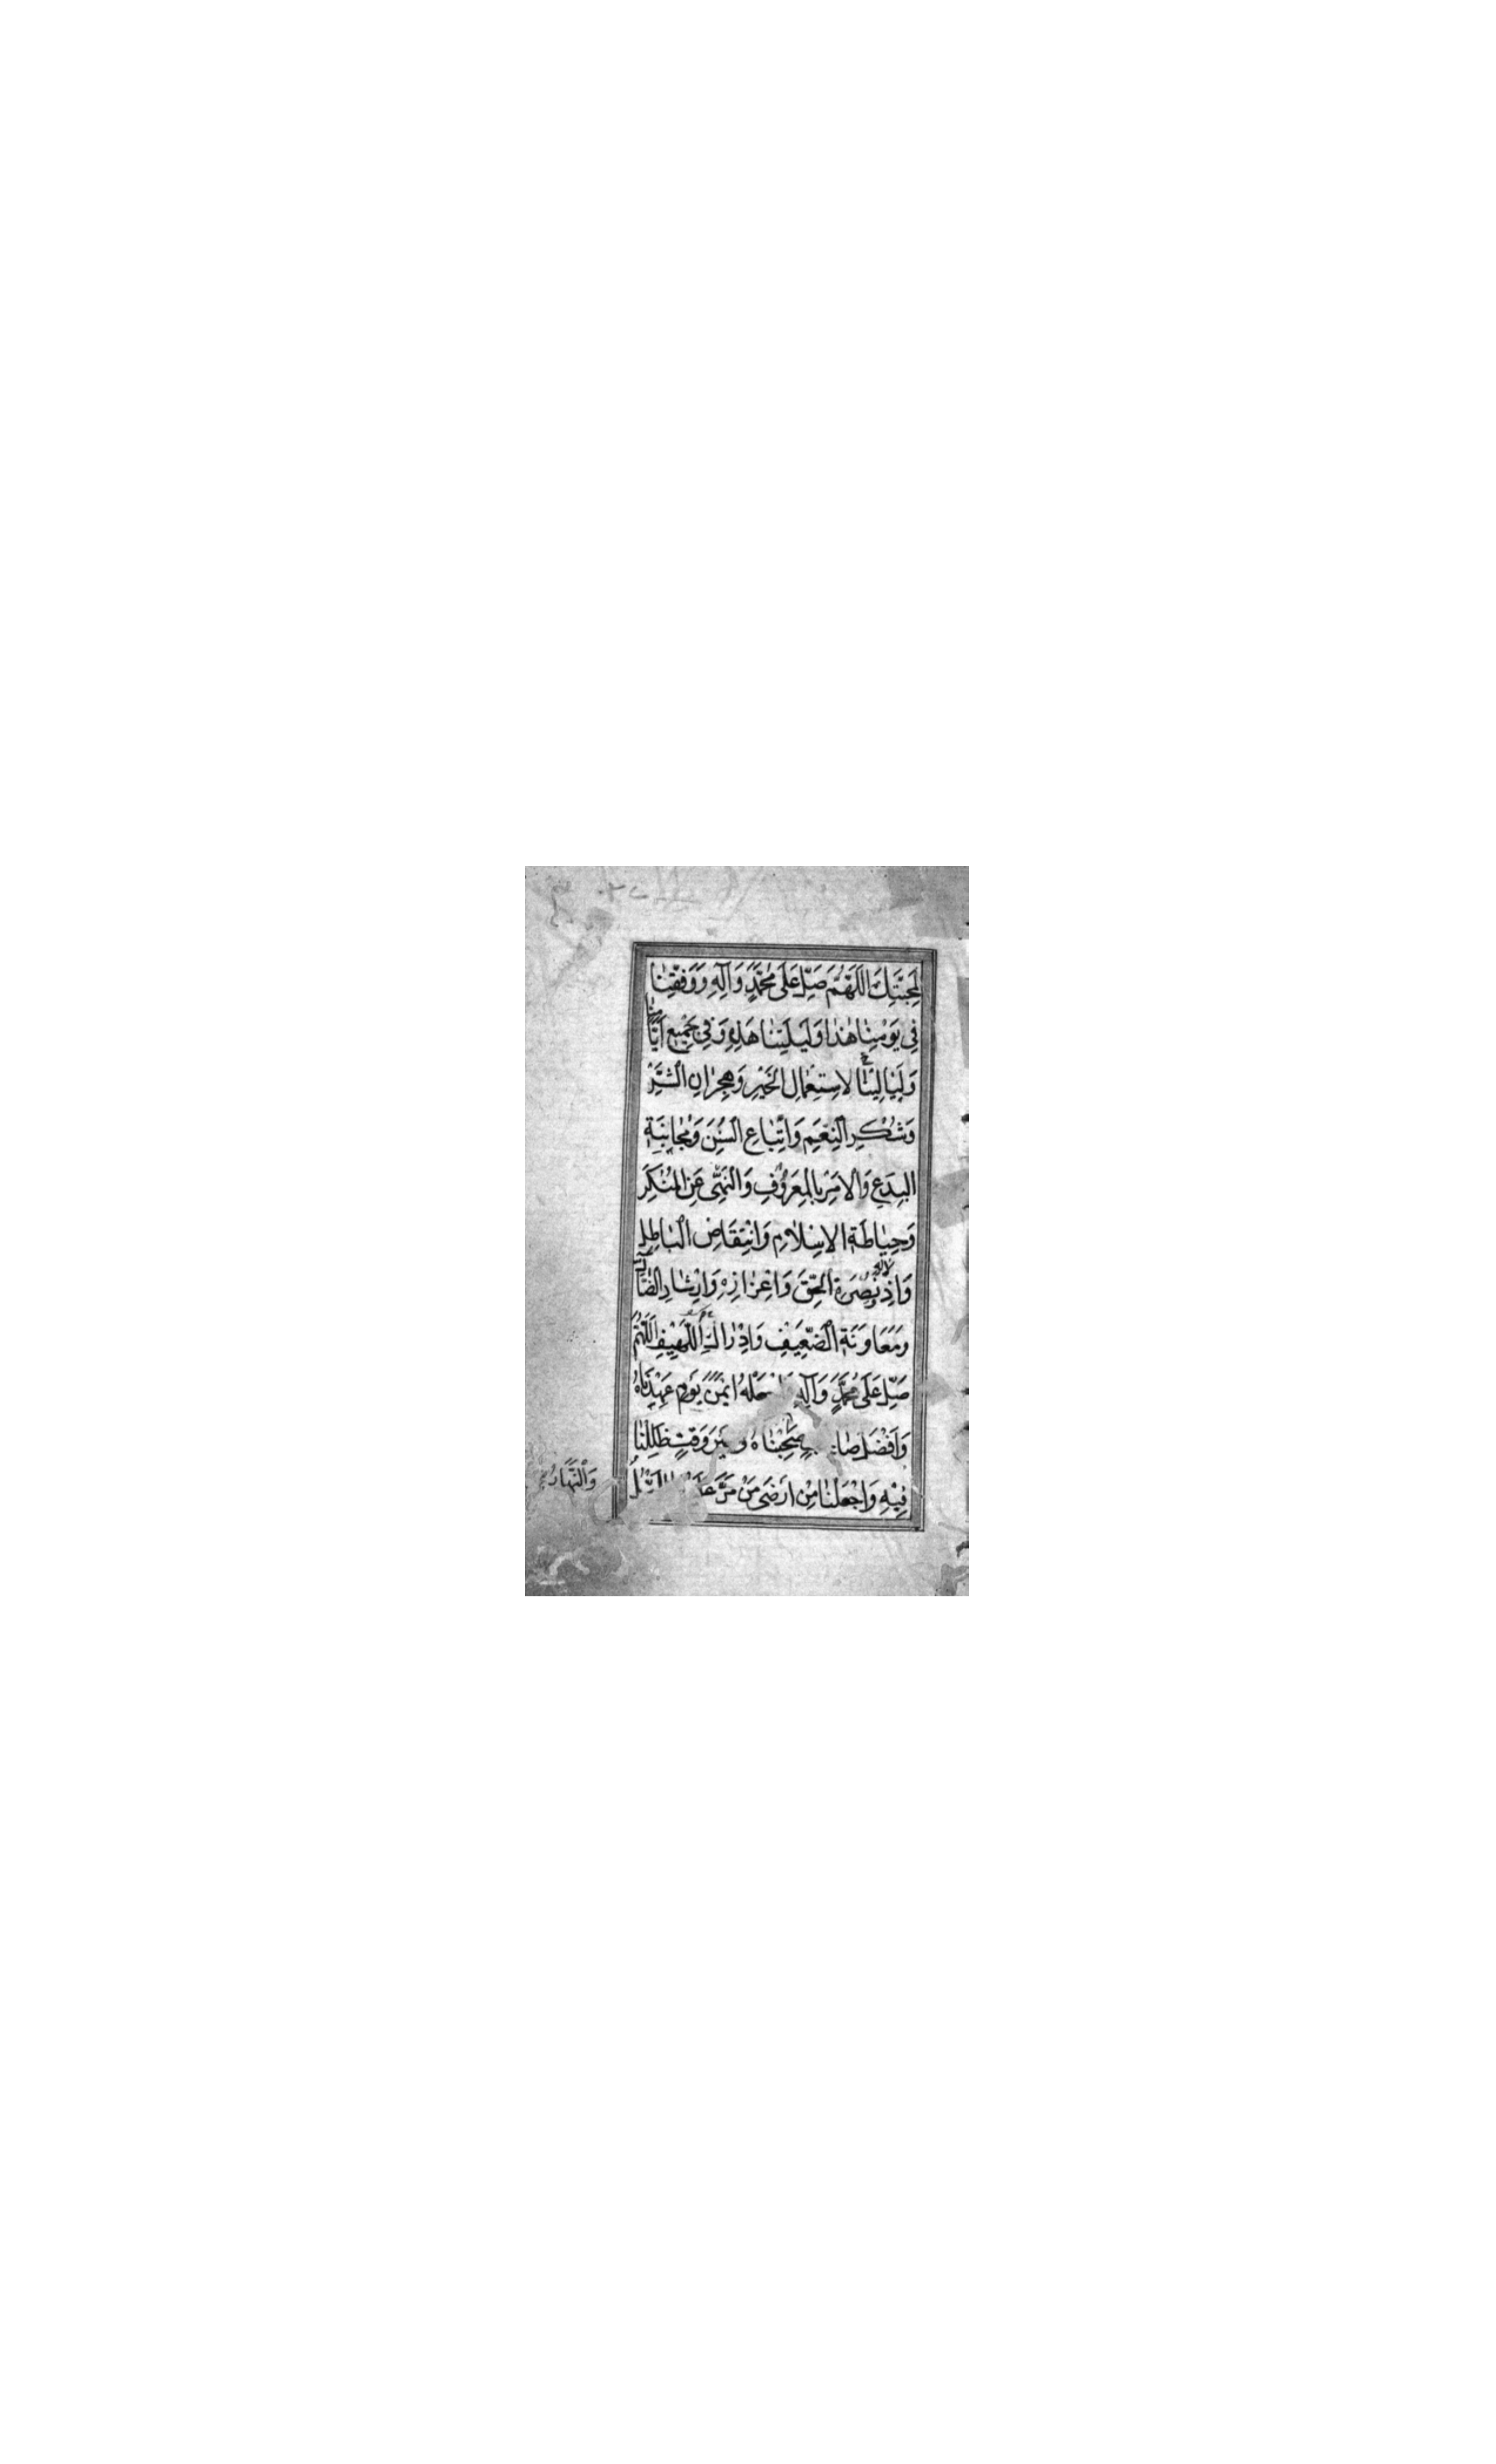 لِمَحَبَّتِكَ اَللّٰهُمَّ صَلِّ عَلٰى مُحَمَّدٍ وَآلِهِ وَوَفِّقْنٰا
فِى يَوْمِنٰا هٰذٰا وَلَيْلَتِنٰا هَذِهِ وَفِى جَمِيْعِ اَيّٰامِنٰا
وَلَيٰالِيْنٰا لاِسْتِعْمٰالِ الْخَيْرِ وَهِجْرٰانِ الشَّرِّ
وَشُكْرِ النِّعَمِ وَاتِّبٰاعِ السُّنَنِ وَمُجٰانَبَةِ
الْبِدَعِ وَالاَمْرِ بِالْمَعْرُوْفِ وَالنَّهْىِ عَنِ الْمُنْكَرِ
وَحِيٰاطَةِ الاِسْلاٰمِ وَانْتِقَاصِ الْبٰاطِلِ
وَاِذْلاَلِهِ وَنُصْرَةِ الْحَقِّ وَاِعْزٰازِهِ وَاِرْشٰادِ الضّٰالِّ
وَمُعَاوَنَةِ الضَّعِيْفِ وَاِدْرٰاكِ اللَّهِيْفِ اَللّٰهُمَّ
صَلِّ عَلٰى مُحَمَّدٍ وَآلِهِ اَيْمَنَ يَوْمٍ عَهِدْنَاهُ
وَاَفْضَلَ صَحِبْنٰاهُ وَقْتٍ ظَلِلْنٰا
فِيْهِ وَاجْعَلْنٰا مِنْ اَرْضٰى مَنْ مَرَّ
وَالنَّهَارُ